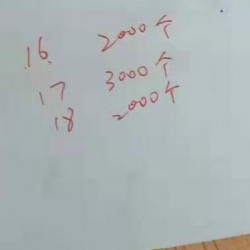 16. 2000个
17 3000个
18 2000个